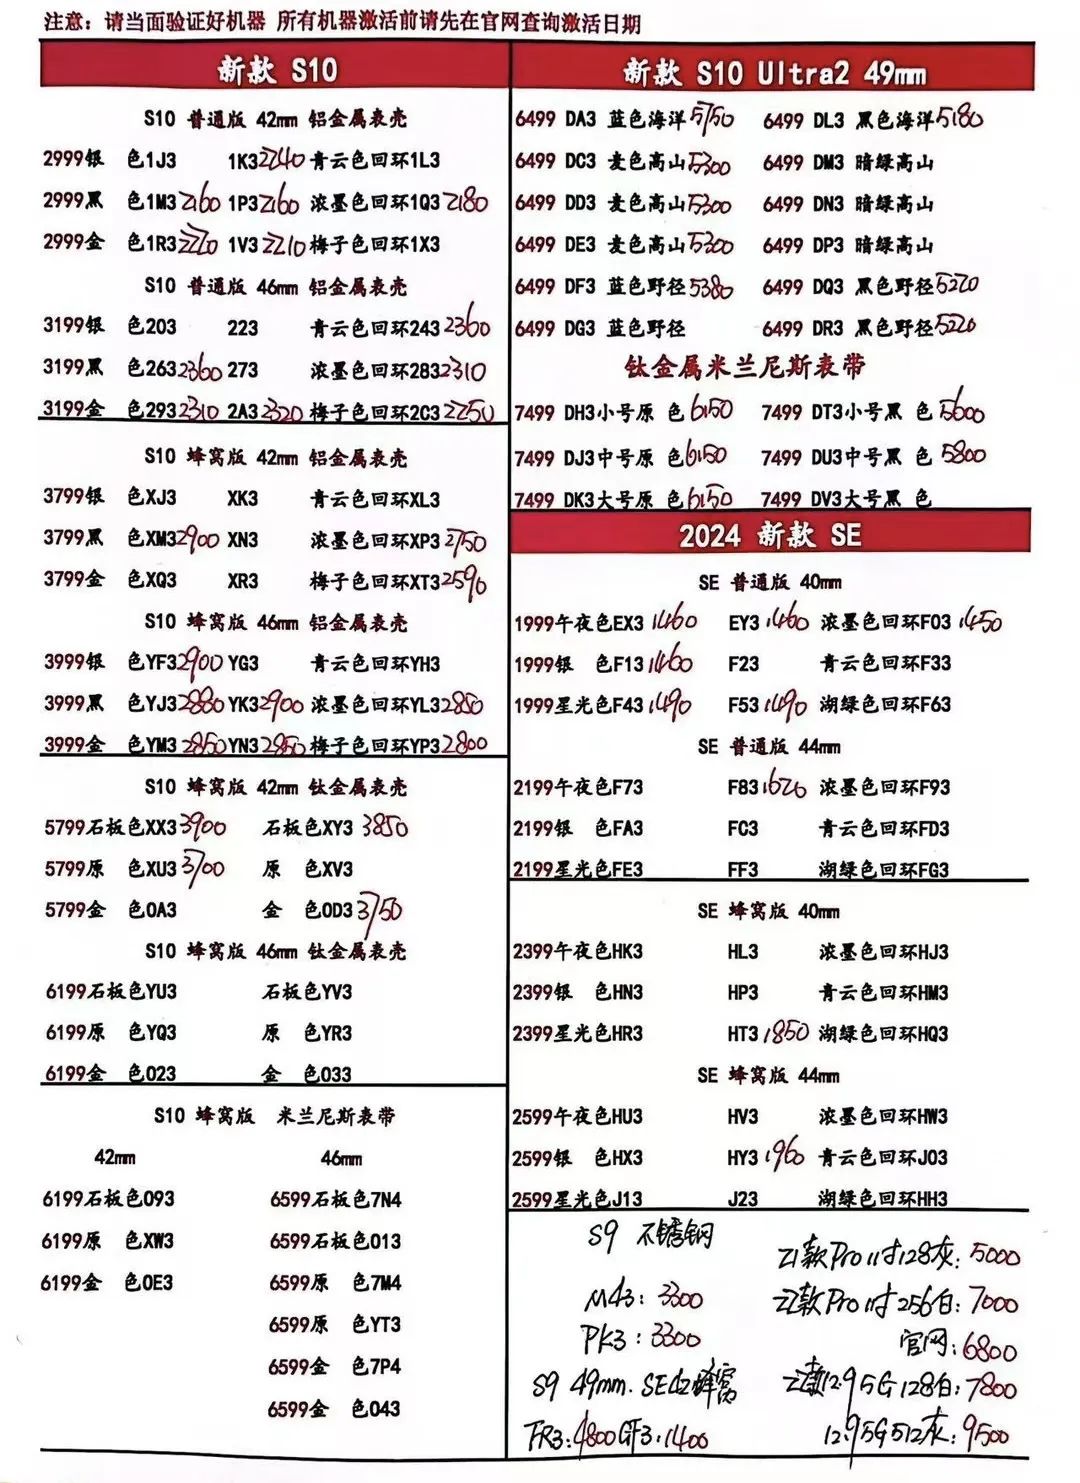 注意：请当面验证好机器 所有机器激活前请先在官网查询激活日期
新款 S10
S10 普通版 42mm 铝金属表壳
2999银 色1J3 1K3 2240 青云色回环1L3
2999黑 色1M3 2160 1P3 2160 浓墨色回环1Q3 2180
2999金 色1R3 2220 1V3 2210 梅子色回环1X3
S10 普通版 46mm 铝金属表壳
3199银 色203 223 青云色回环243 2360
3199黑 色263 2360 273 浓墨色回环283 2310
3199金 色293 2310 2A3 2320 梅子色回环2C3 2250
S10 蜂窝版 42mm 铝金属表壳
3799银 色XJ3 XK3 青云色回环XL3
3799黑 色XM3 2900 XN3 浓墨色回环XP3 2750
3799金 色XQ3 XR3 梅子色回环XT3 2590
S10 蜂窝版 46mm 铝金属表壳
3999银 色YF3 2900 YG3 青云色回环YH3
3999黑 色YJ3 2880 YK3 2900 浓墨色回环YL3 2850
3999金 色YM3 2850 YN3 2950 梅子色回环YP3 2800
S10 蜂窝版 42mm 钛金属表壳
5799石板色XX3 3900 石板色XY3 3850
5799原 色XU3 3700 原 色XV3
5799金 色0A3 金 色0D3 3750
S10 蜂窝版 46mm 钛金属表壳
6199石板色YU3 石板色YV3
6199原 色YQ3 原 色YR3
6199金 色023 金 色033
S10 蜂窝版 米兰尼斯表带
42mm 46mm
6199石板色093 6599石板色7N4
6199原 色XW3 6599石板色013
6199金 色0E3 6599原 色7M4
6599原 色YT3
6599金 色7P4
6599金 色043
新款 S10 Ultra2 49mm
6499 DA3 蓝色海洋 5750 6499 DL3 黑色海洋 5180
6499 DC3 麦色高山 5300 6499 DM3 暗绿高山
6499 DD3 麦色高山 5300 6499 DN3 暗绿高山
6499 DE3 麦色高山 5300 6499 DP3 暗绿高山
6499 DF3 蓝色野径 5380 6499 DQ3 黑色野径 5220
6499 DG3 蓝色野径 6499 DR3 黑色野径 5220
钛金属米兰尼斯表带
7499 DH3小号原 色 6150 7499 DT3小号黑 色 5600
7499 DJ3中号原 色 6150 7499 DU3中号黑 色 5800
7499 DK3大号原 色 6150 7499 DV3大号黑 色
2024 新款 SE
SE 普通版 40mm
1999午夜色EX3 1460 EY3 1460 浓墨色回环F03 1450
1999银 色F13 1460 F23 青云色回环F33
1999星光色F43 1490 F53 1490 湖绿色回环F63
SE 普通版 44mm
2199午夜色F73 F83 1620 浓墨色回环F93
2199银 色FA3 FC3 青云色回环FD3
2199星光色FE3 FF3 湖绿色回环FG3
SE 蜂窝版 40mm
2399午夜色HK3 HL3 浓墨色回环HJ3
2399银 色HN3 HP3 青云色回环HM3
2399星光色HR3 HT3 1850 湖绿色回环HQ3
SE 蜂窝版 44mm
2599午夜色HU3 HV3 浓墨色回环HW3
2599银 色HX3 HY3 1960 青云色回环J03
2599星光色J13 J23 湖绿色回环HH3
S9 不锈钢
M43：3300
PK3：3300
S9 49mm. SE 蜂窝
FR3：4800 GF3：1400
21款Pro 11寸128灰：5000
22款Pro 11寸256白：7000
官网：6800
12.9 5G 128白：7800
12.9 5G 512灰：9500